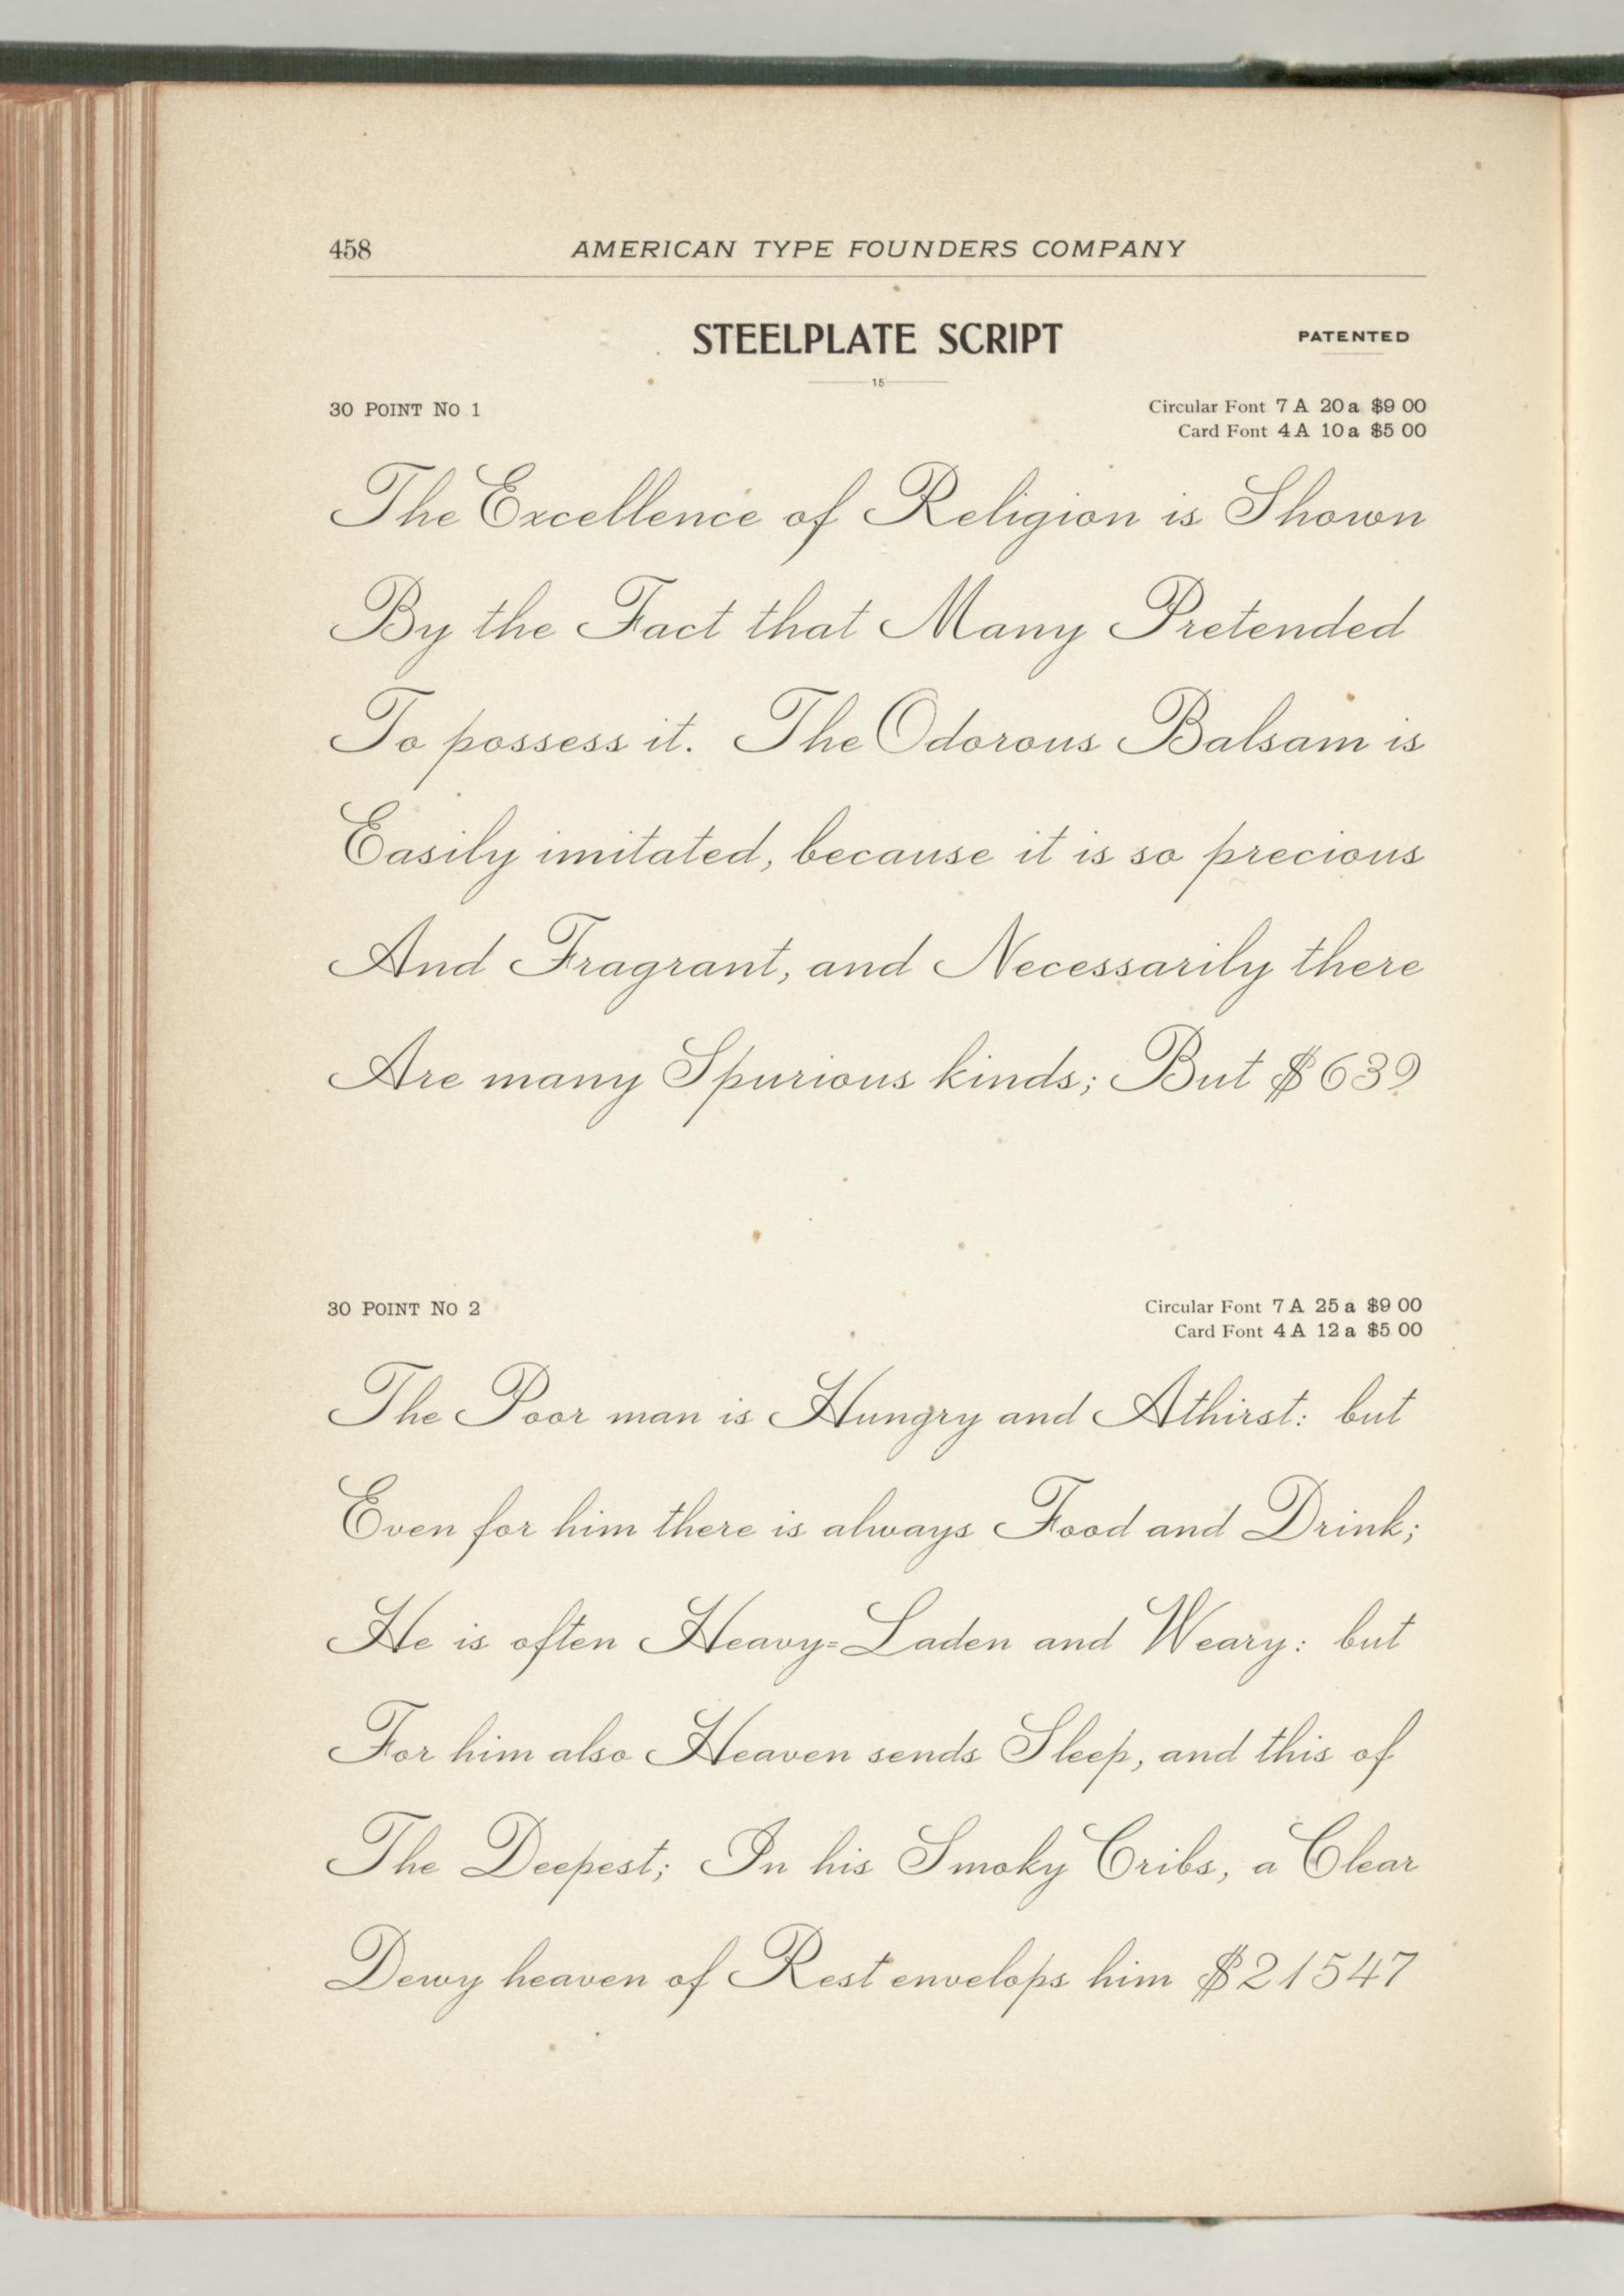 458
AMERICAN TYPE FOUNDERS COMPANY
STEELPLATE SCRIPT
PATENTED
15
30 POINT NO 1
Circular Font 7 A 20 a $9 00
Card Font 4 A 10 a $5 00
The Excellence of Religion is Shown
By the Fact that Many Pretended
To possess it. The Odorous Balsam is
Easily imitated, because it is so precious
And Fragrant, and Necessarily there
Are many Spurious kinds; But $639
30 POINT NO 2
Circular Font 7 A 25 a $9 00
Card Font 4 A 12 a $5 00
The Poor man is Hungry and Athirst: but
Even for him there is always Food and Drink;
He is often Heavy-Laden and Weary: but
For him also Heaven sends Sleep, and this of
The Deepest; In his Smoky Cribs, a Clear
Dewy heaven of Rest envelops him $21547